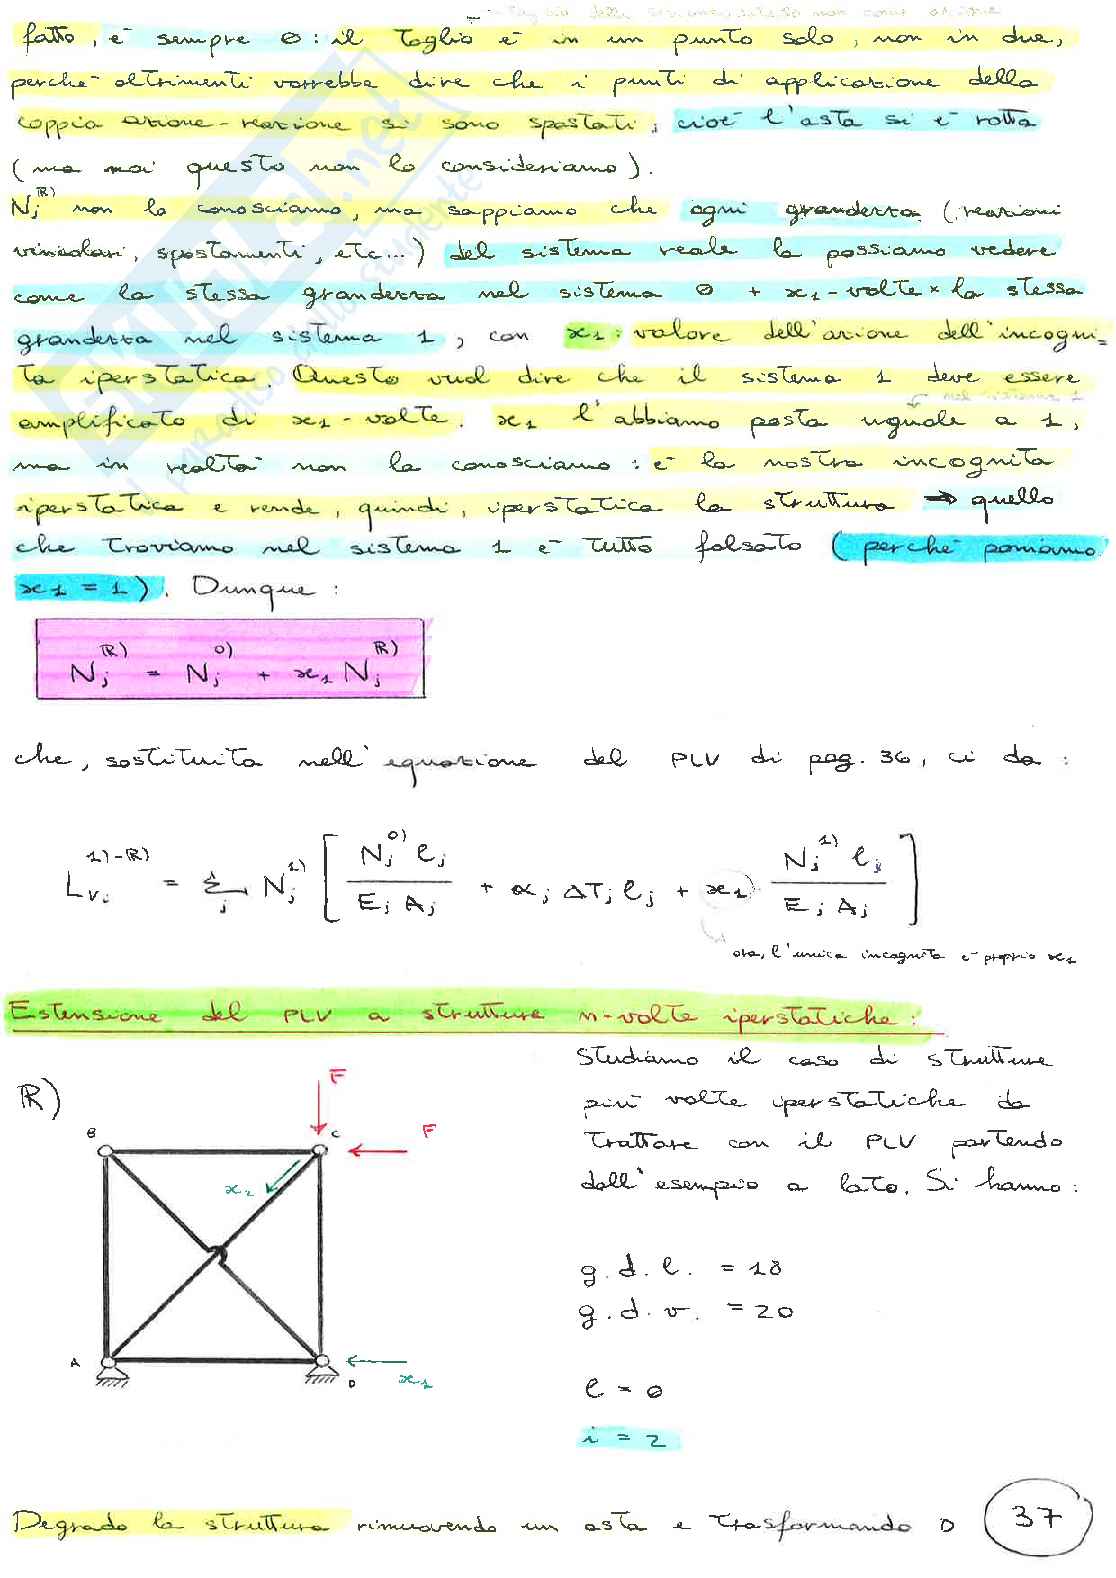 fatto, è sempre 0: il taglio è in un punto solo, non in due,
perché altrimenti vorrebbe dire che i punti di applicazione della
coppia azione-reazione si sono spostati, cioè l'asta si è rotta
(ma noi questo non lo consideriamo).
Nj^R) non lo conosciamo, ma sappiamo che ogni grandezza (reazioni
vincolari, spostamenti, etc...) del sistema reale la possiamo vedere
come la stessa grandezza nel sistema 0 + x1-volte × la stessa
grandezza nel sistema 1, con x1: valore dell'azione dell'incogni=
ta iperstatica. Questo vuol dire che il sistema 1 deve essere
nel sistema 1
amplificato di x1-volte. x1 l'abbiamo posta uguale a 1,
ma in realtà non la conosciamo: è la nostra incognita
iperstatica e rende, quindi, iperstatica la struttura → quello
che troviamo nel sistema 1 è tutto falsato (perché poniamo
x1 = 1). Dunque:
Nj^R) = Nj^0) + x1 Nj^R)
che, sostituita nell'equazione del PLV di pag. 36, ci da:
Lvi^1)-R) = Σj Nj^1) [ Nj^0) lj / Ej Aj + αj ΔTj lj + x1 Nj^1) lj / Ej Aj ]
ora, l'unica incognita è proprio x1
Estensione del PLV a strutture n-volte iperstatiche:
Studiamo il caso di strutture
più volte iperstatiche da
trattare con il PLV partendo
dall'esempio a lato. Si hanno:
R)
F
F
B
C
x2
A
D
x1
g.d.l. = 18
g.d.v. = 20
l = 0
i = 2
Degrado la struttura rimuovendo un asta e trasformando D
37